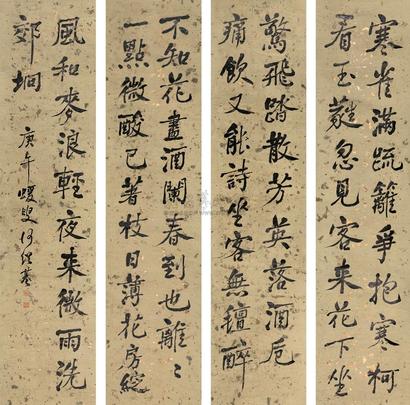 寒雀滿疏籬爭抱寒柯
看玉蕤忽見客来花下坐
驚飛踏散芳英落酒卮
痛飲又能詩坐客無氊醉
不知花盡酒闌春到也離〻
一點微酸已著枝日薄花房綻
風和麥浪輕夜来微雨洗
郊坰
庚午 蝯叟何紹基